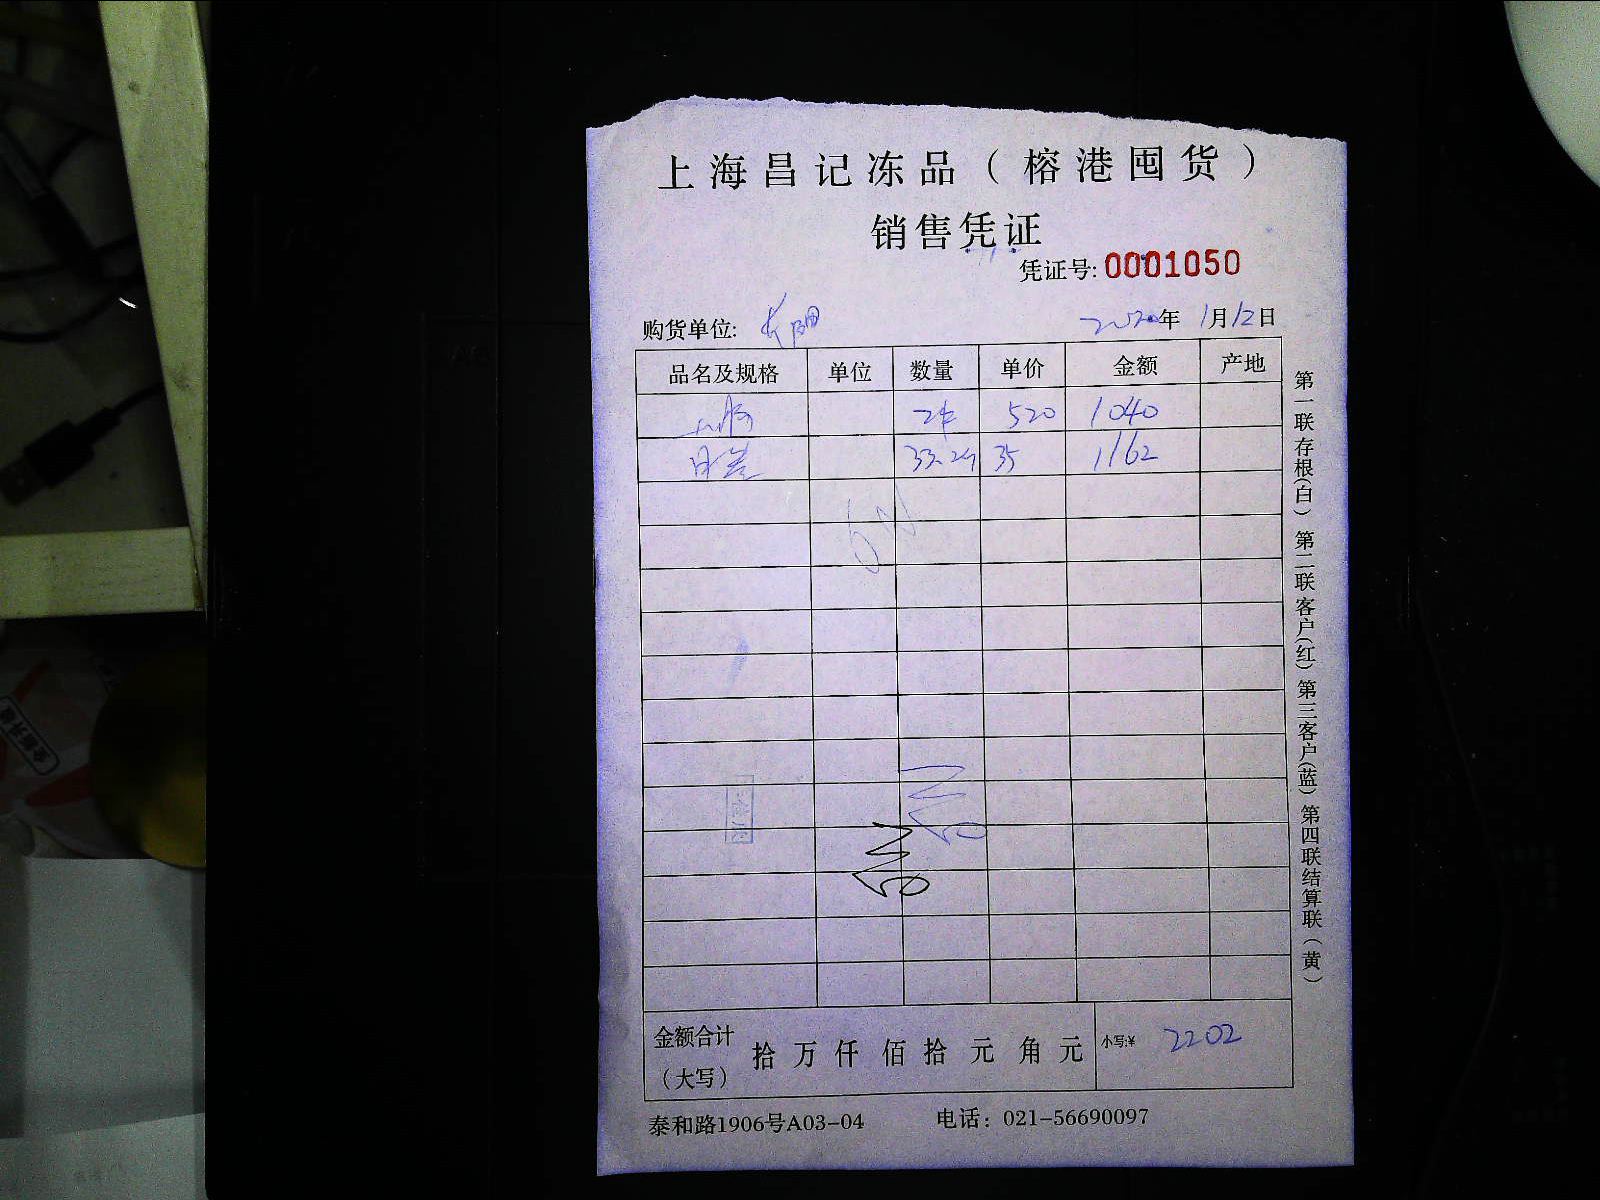 上海昌记冻品（榕港囤货）
销售凭证
凭证号: 0001050
购货单位: 2020年 1月12日
品名及规格 单位 数量 单价 金额 产地
2件 520 1040
33.2斤 35 1162
金额合计（大写） 拾 万 仟 佰 拾 元 角 元 小写:¥ 2202
泰和路1906号A03-04 电话：021-56690097
第一联存根(白) 第二联客户(红) 第三客户(蓝) 第四联结算联(黄)